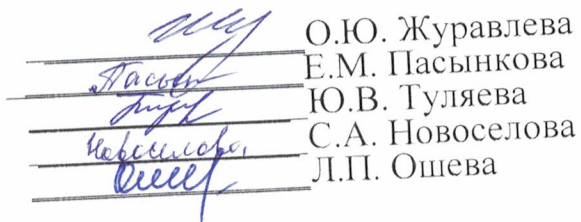 О.Ю. Журавлева
Е.М. Пасынкова
Ю.В. Туляева
Новоселова, С.А. Новоселова
Л.П. Ошева